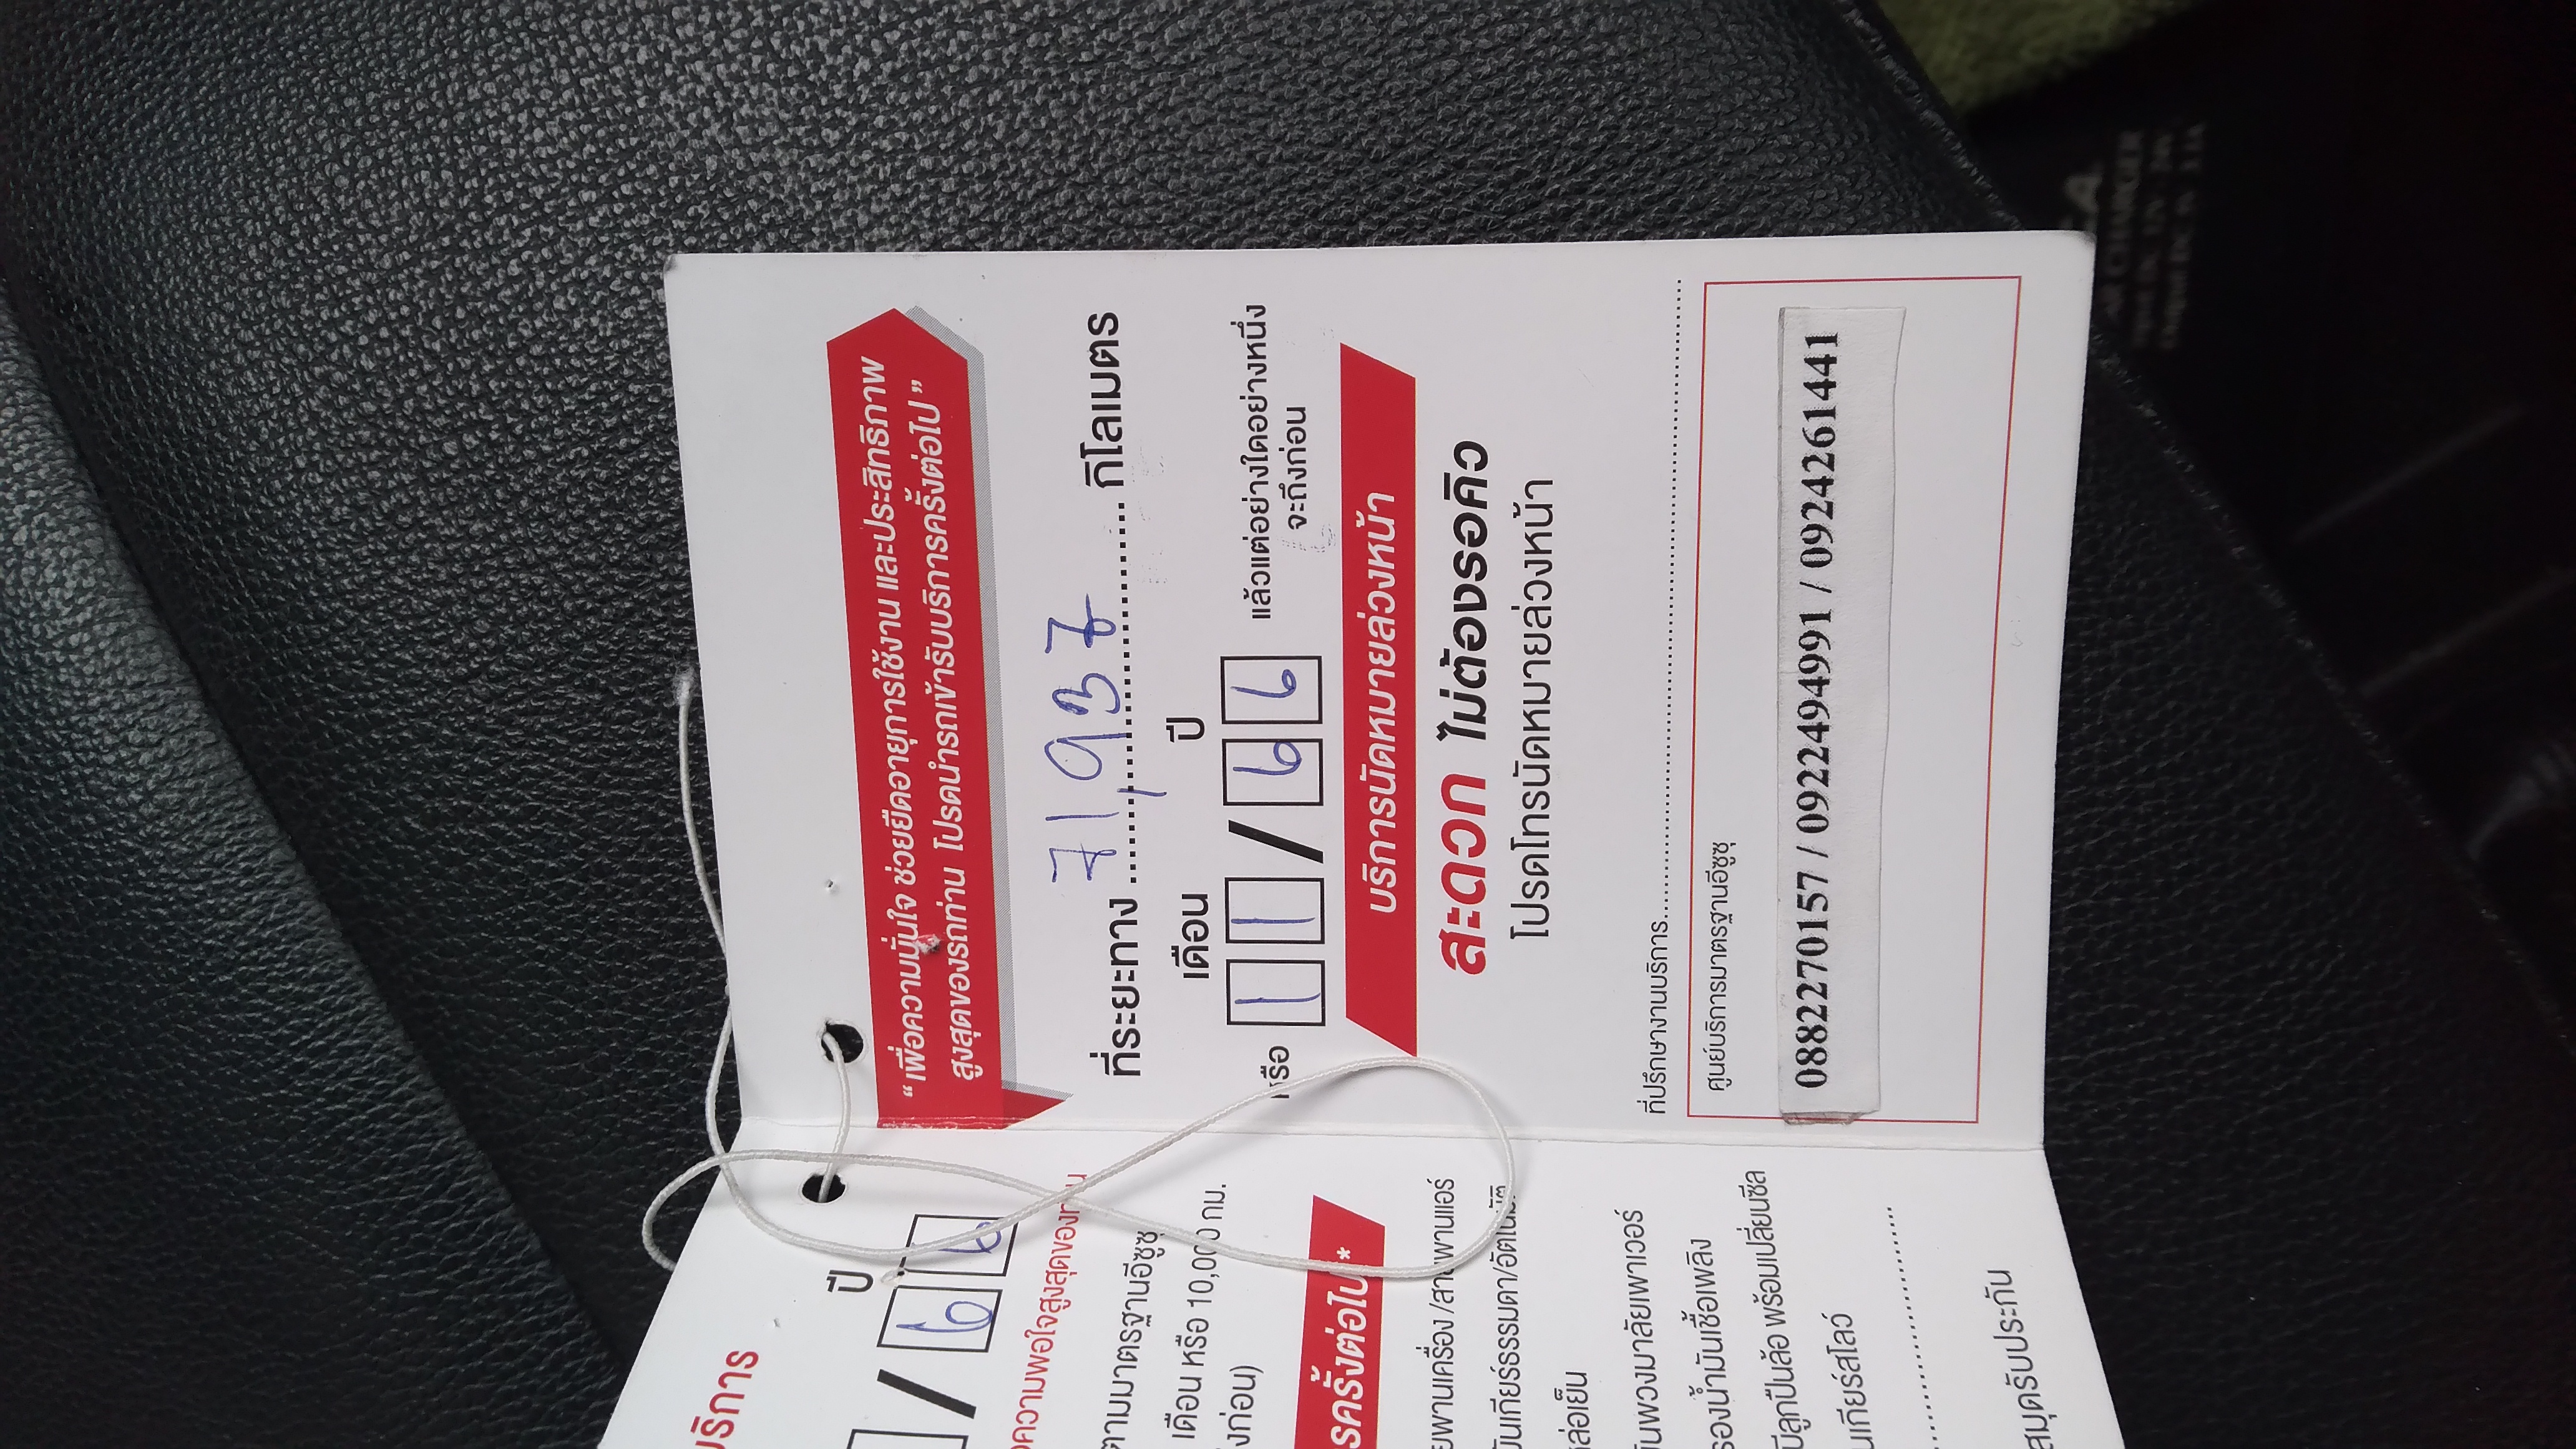 บริการ
ปี
/ 6 6
ความพอใจสูงสุดของท่าน
ตามมาตรฐานอีซูซุ
เดือน หรือ 10,000 กม.
ก่อน)
ครั้งต่อไป *
พานเครื่อง /สายพานแอร์
มันเกียร์ธรรมดา/อัตโนมัติ
หล่อเย็น
มันพวงมาลัยเพาเวอร์
กรองน้ำมันเชื้อเพลิง
ลูกปืนล้อ พร้อมเปลี่ยนซีล
เกียร์สโลว์
สมุดรับประกัน
“ เพื่อความมั่นใจ ช่วยยืดอายุการใช้งาน และประสิทธิภาพ
สูงสุดของรถท่าน โปรดนำรถเข้ารับบริการครั้งต่อไป ”
ที่ระยะทาง 71,937 กิโลเมตร
เดือน ปี
หรือ 1 1 / 6 6 แล้วแต่อย่างใดอย่างหนึ่ง
จะถึงก่อน
บริการนัดหมายล่วงหน้า
สะดวก ไม่ต้องรอคิว
โปรดโทรนัดหมายล่วงหน้า
ที่ปรึกษางานบริการ
ศูนย์บริการมาตรฐานอีซูซุ
0882270157 / 0922494991 / 0924261441
CHARGER